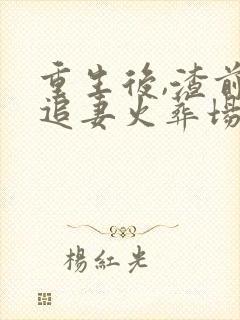 重生後,渣前
追妻火葬場
楊紅光